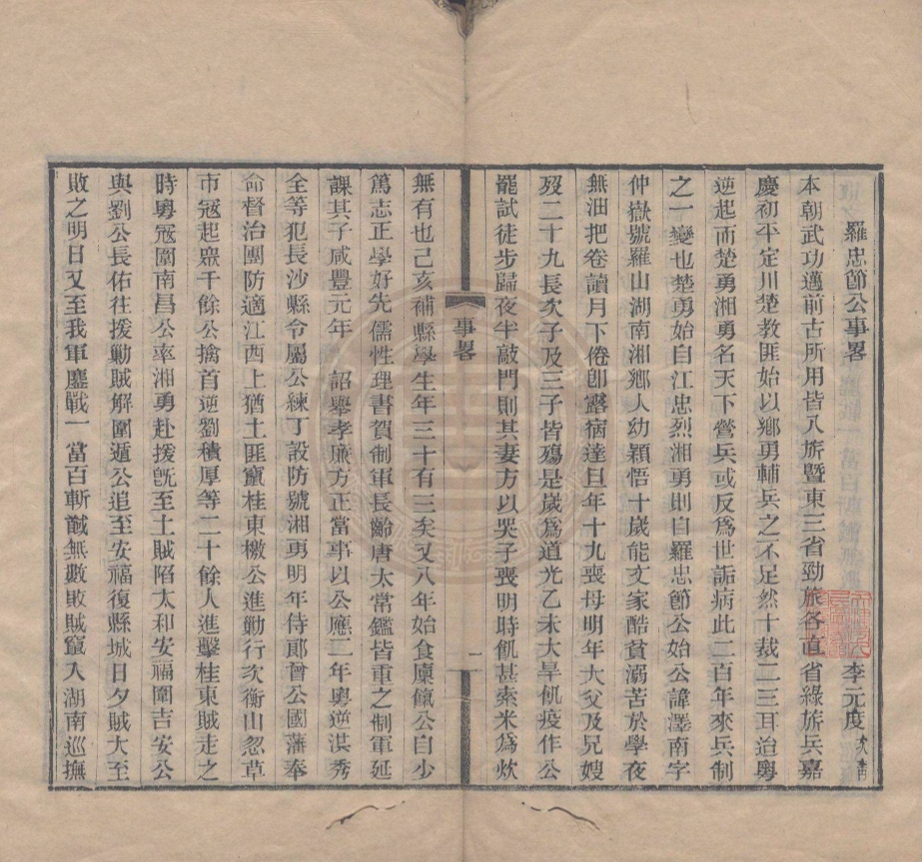 羅忠節公事畧
李元度 次青
本朝武功邁前古所用皆八旂暨東三省勁旅各直省綠旂兵嘉
慶初平定川楚教匪始以鄉勇輔兵之不足然十裁二三耳洎粵
逆起而楚勇湘勇名天下營兵或反爲世詬病此二百年來兵制
之一變也楚勇始自江忠烈湘勇則自羅忠節公始公諱澤南字
仲嶽號羅山湖南湘鄉人幼穎悟十歲能文家酷貧溺苦於學夜
無油把卷讀月下倦卽露宿達旦年十九喪母明年大父及兄嫂
歿二十九長次子及三子皆殤是歲爲道光乙未大旱飢疫作公
罷試徒步歸夜半敲門則其妻方以哭子喪明時飢甚索米爲炊
事畧
一
無有也己亥補縣學生年三十有三矣又八年始食廩餼公自少
篤志正學好先儒性理書賀制軍長齡唐太常鑑皆重之制軍延
課其子咸豐元年 詔舉孝廉方正當事以公應二年粵逆洪秀
全等犯長沙縣令屬公練丁設防號湘勇明年侍郞曾公國藩奉
命督治團防適江西上猶土匪竄桂東檄公進勦行次衡山忽草
市冦起眾千餘公擒首逆劉積厚等二十餘人進擊桂東賊走之
時粵冦圍南昌公率湘勇赴援旣至土賊陷太和安福圍吉安公
與劉公長佑往援勦賊解圍遁公追至安福復縣城日夕賊大至
敗之明日又至我軍鏖戰一當百斬馘無數敗賊竄入湖南巡撫